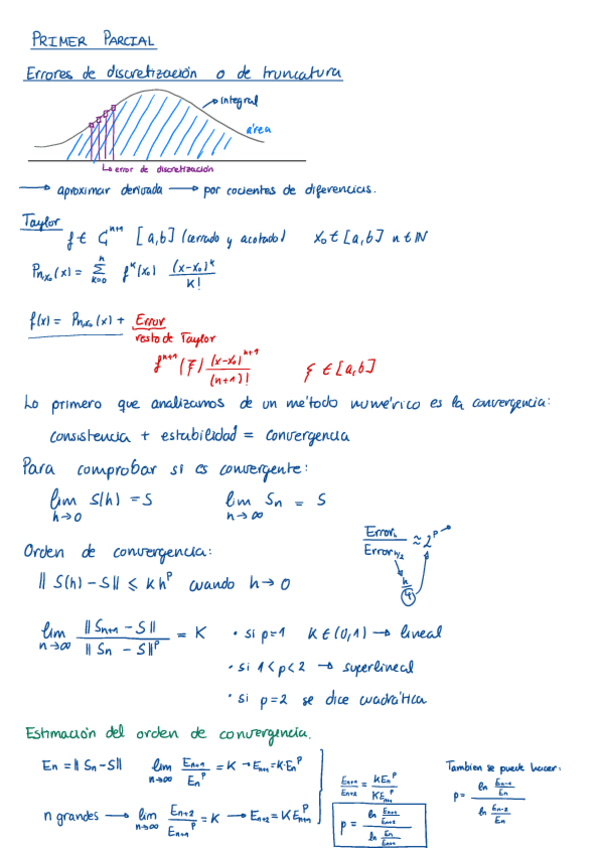 PRIMER PARCIAL
Errores de discretización o de truncatura
integral
área
error de discretización
→ aproximar derivada → por cocientes de diferencias.
Taylor
f ∈ C^{n+1} [a,b] (cerrado y acotado) x₀ ∈ [a,b] n ∈ ℕ
P_{n,x₀}(x) = Σ_{k=0}^{n} f^k(x₀) (x-x₀)^k / k!
f(x) = P_{n,x₀}(x) + Error
resto de Taylor
f^{n+1}(ξ) (x-x₀)^{n+1} / (n+1)! ξ ∈ [a,b]
Lo primero que analizamos de un método numérico es la convergencia:
consistencia + estabilidad = convergencia
Para comprobar si es convergente:
lim_{h→0} S(h) = S lim_{n→∞} Sn = S
Error / Error_{h/2} ≈ 2^p →
h/4
Orden de convergencia:
|| S(h) - S || ≤ k h^p cuando h → 0
lim_{n→∞} || S_{n+1} - S || / || Sn - S ||^p = K • si p=1 K ∈ (0,1) → lineal
• si 1<p<2 → superlineal
• si p=2 se dice cuadrática
Estimación del orden de convergencia.
En = || Sn - S || lim_{n→∞} E_{n+1} / En^p = K → E_{n+1} = K·En^p
n grandes → lim_{n→∞} E_{n+2} / E_{n+1}^p = K → E_{n+2} = K E_{n+1}^p
E_{n+1} / E_{n+2} = K En^p / K E_{n+1}^p
p = ln (E_{n+1} / E_{n+2}) / ln (En / E_{n+1})
Tambien se puede hacer:
p = ln (E_{n-1} / En) / ln (E_{n-2} / En)